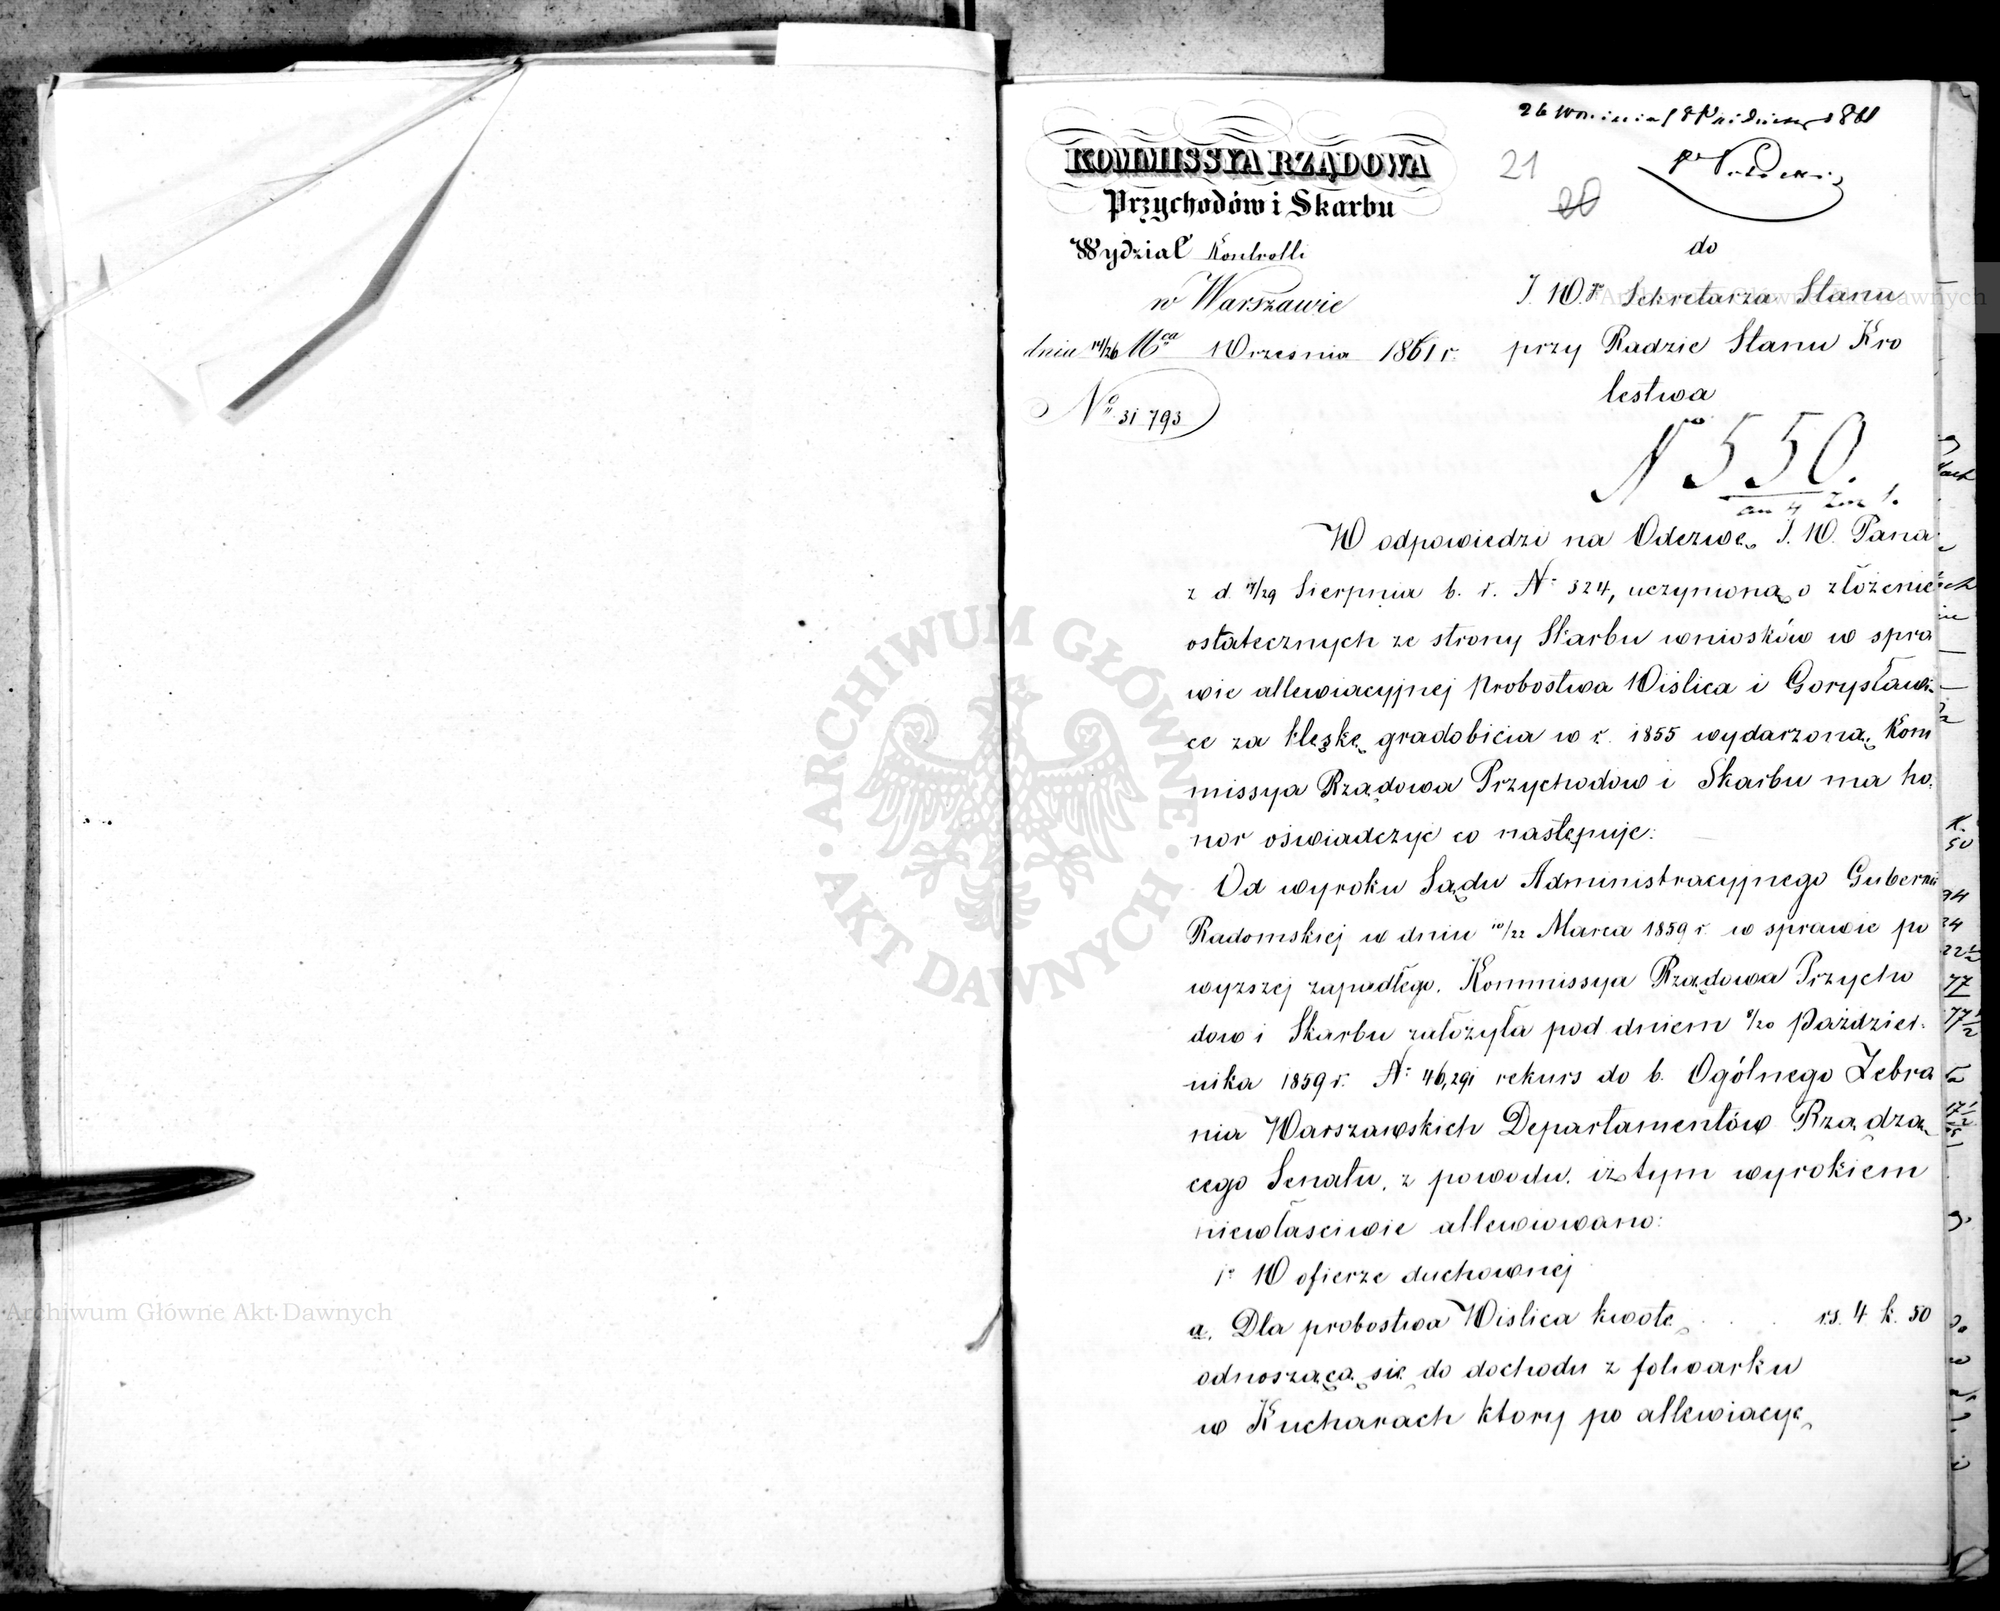 26 Września / 8 Paździer 1861
KOMMISSYA RZĄDOWA
Przychodów i Skarbu
21
20
Wydział Kontrolli
w Warszawie
dnia 14/26 Mca Września 1861 r.
No 31793
do
J. W. Sekretarza Stanu
przy Radzie Stanu Kro
lestwa
No 550.
W odpowiedzi na Odezwę J. W. Pana
z d. 17/29 Sierpnia b. r. N: 324, uczynioną o złożenie
ostatecznych ze strony Skarbu wniosków w spra
wie allewiacyjnej Probostwa Wiślica i Gorysławi-
ce za klęskę gradobicia w r. 1855 wydarzoną, Kom
missya Rządowa Przychodow i Skarbu ma ho-
nor oświadczyć co następuje:
Od wyroku Sądu Administracyjnego Gubernii
Radomskiej w dniu 10/22 Marca 1859 r. w sprawie po
wyższej zapadłego, Kommissya Rządowa Przycho
dow i Skarbu założyła pod dniem 8/20 Paździer-
nika 1859 r. N: 46,291 rekurs do b. Ogólnego Zebra
nia Warszawskich Departamentów Rządzą-
cego Senatu, z powodu, iż tym wyrokiem
niewłaściwie allewiowano:
1o W ofierze duchownej
a. Dla probostwa Wiślica kwotę . . . rs. 4 k. 50
odnoszącą się do dochodu z folwarku
w Kucharach ktory po allewiacyę
ARCHIWUM GŁÓWNE AKT DAWNYCH
Archiwum Główne Akt Dawnych
Archiwum Główne Akt Dawnych